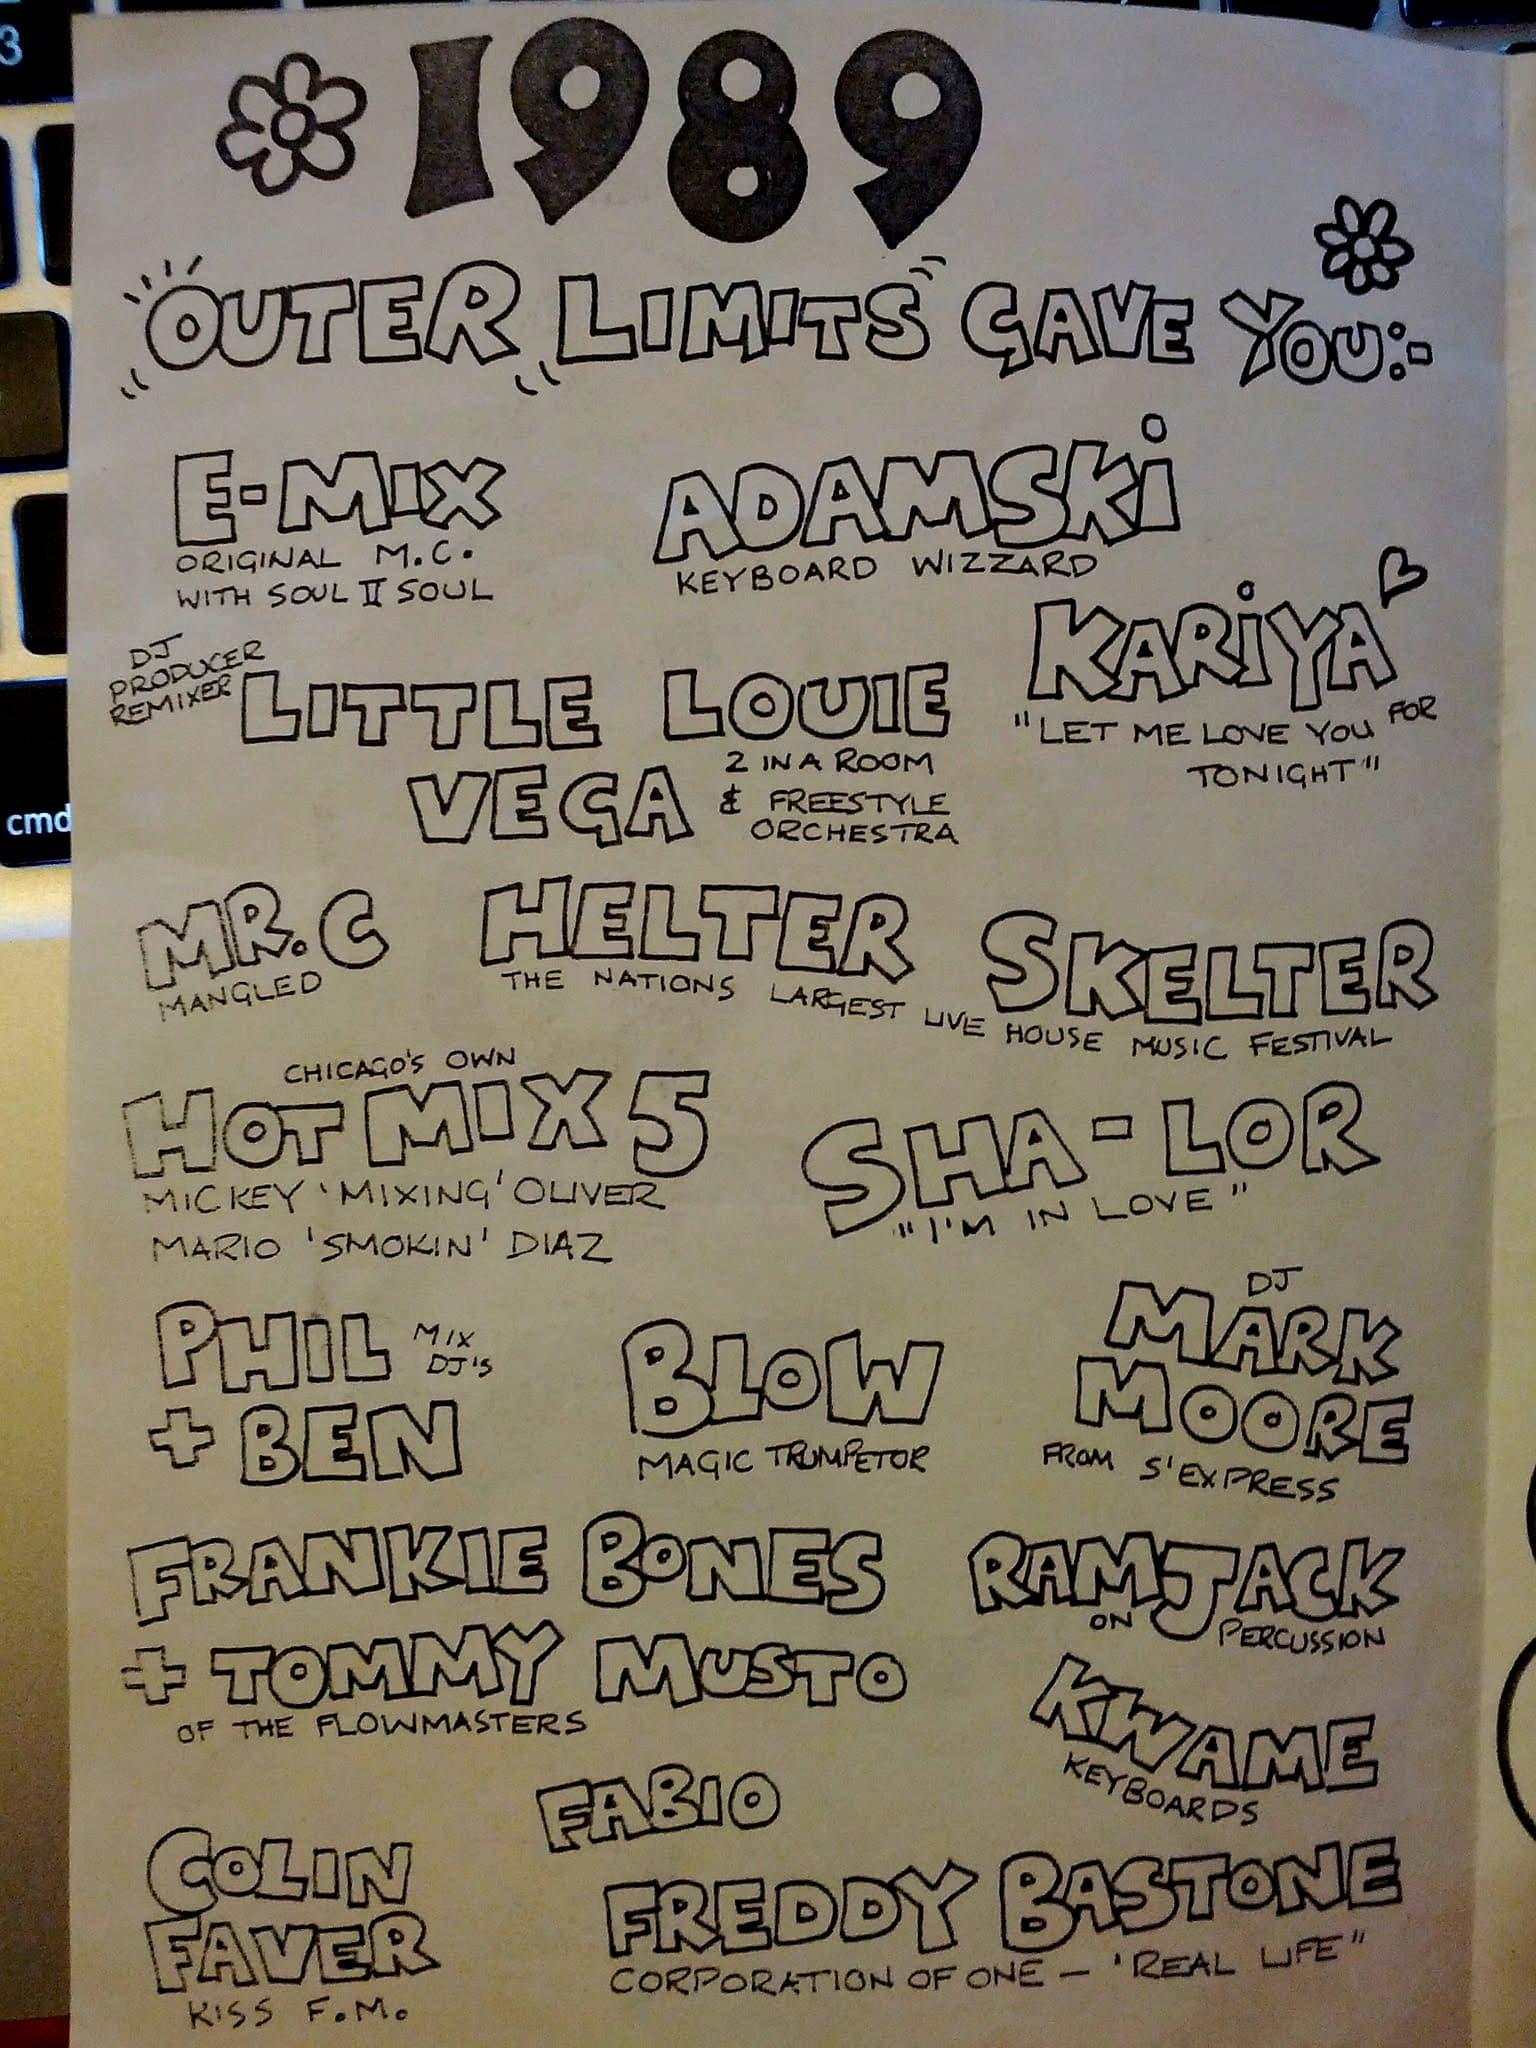 1989
"OUTER LIMITS" GAVE YOU:-
E-MIX
ORIGINAL M.C.
WITH SOUL II SOUL
ADAMSKI
KEYBOARD WIZZARD
KARIYA
"LET ME LOVE YOU FOR
TONIGHT"
DJ
PRODUCER
REMIXER
LITTLE LOUIE
VEGA
2 IN A ROOM
& FREESTYLE
ORCHESTRA
MR. C
MANGLED
HELTER SKELTER
THE NATIONS LARGEST LIVE HOUSE MUSIC FESTIVAL
CHICAGO'S OWN
HOT MIX 5
MICKEY 'MIXING' OLIVER
MARIO 'SMOKIN' DIAZ
SHA-LOR
"I'M IN LOVE"
PHIL
+ BEN
MIX
DJ'S
BLOW
MAGIC TRUMPETOR
DJ
MARK
MOORE
FROM S'EXPRESS
FRANKIE BONES
+ TOMMY MUSTO
OF THE FLOWMASTERS
RAMJACK
ON PERCUSSION
KWAME
KEYBOARDS
FABIO
COLIN
FAVER
KISS F.M.
FREDDY BASTONE
CORPORATION OF ONE - 'REAL LIFE"
3
cmd